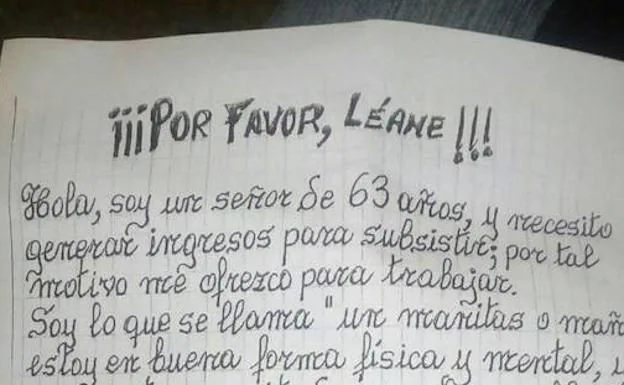 ¡¡¡POR FAVOR, LÉAME!!!
Hola, soy un señor de 63 años, y necesito
generar ingresos para subsistir; por tal
motivo me ofrezco para trabajar.
Soy lo que se llama "un mañitas o
estoy en buena forma física y mental,